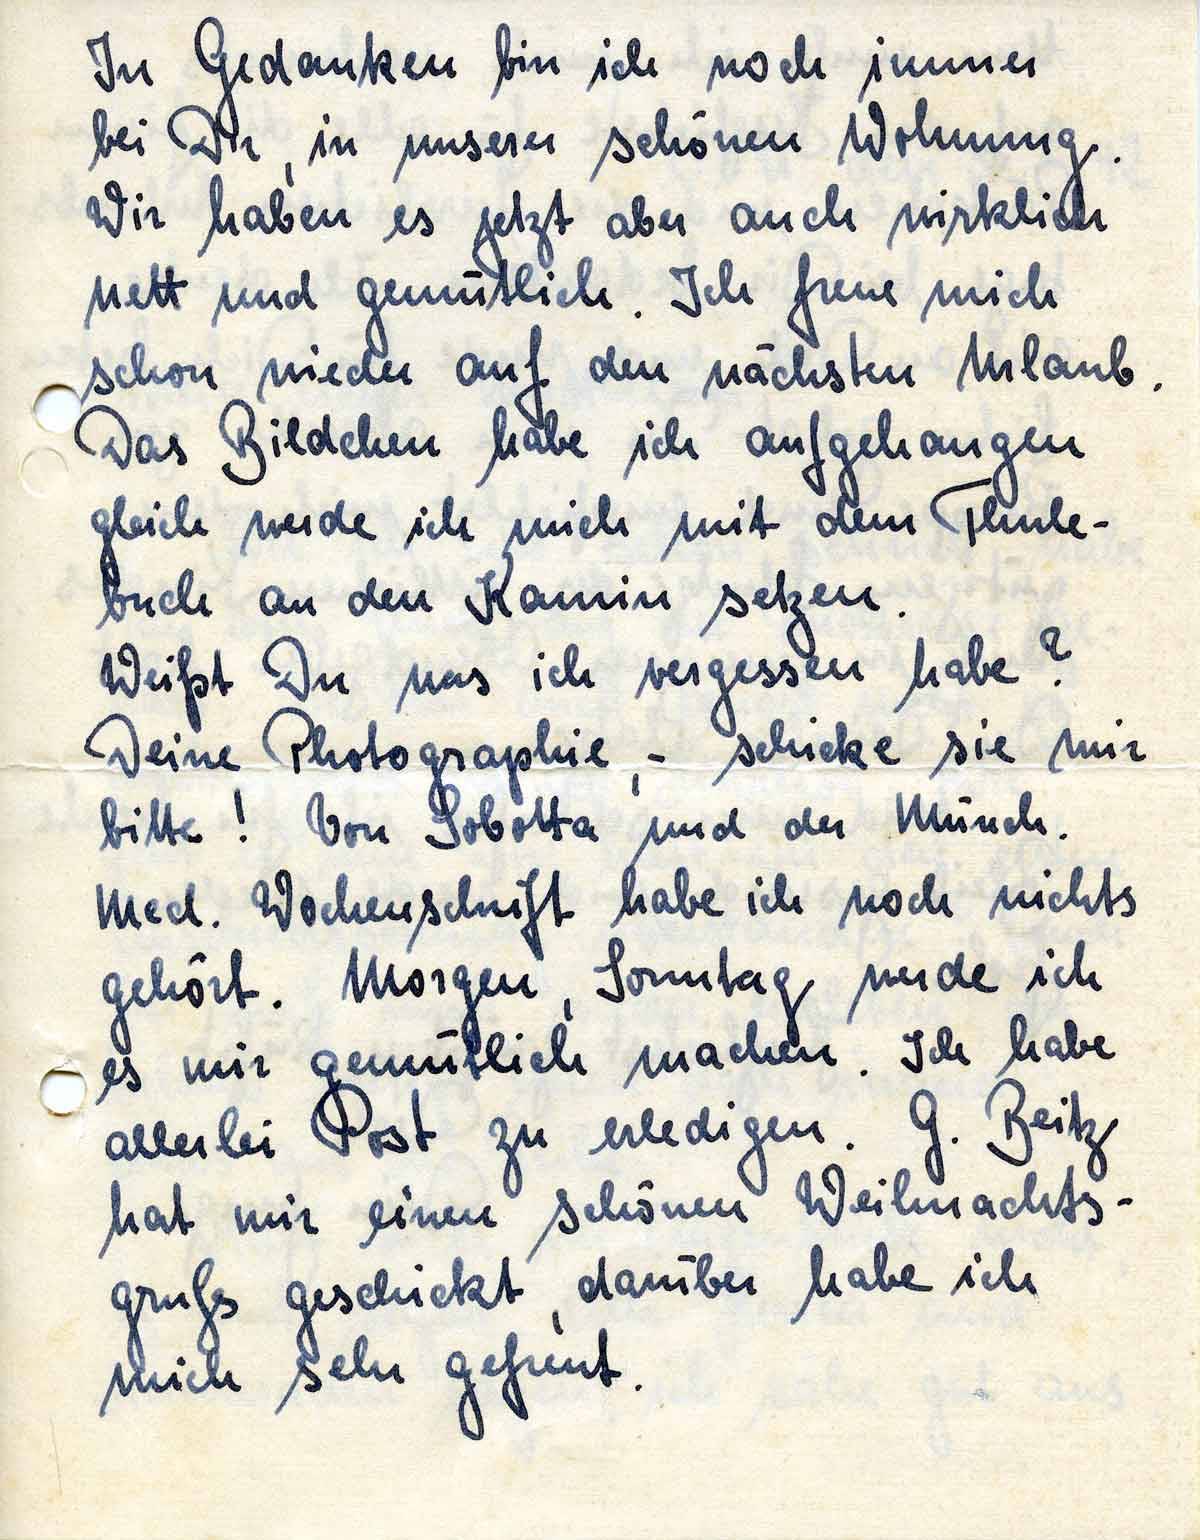 In Gedanken bin ich noch immer
bei Dir, in unserer schönen Wohnung.
Wir haben es jetzt aber auch wirklich
nett und gemütlich. Ich freue mich
schon wieder auf den nächsten Urlaub.
Das Bildchen habe ich aufgehangen
gleich werde ich mich mit dem Thule-
buch an den Kamin setzen.
Weißt Du was ich vergessen habe?
Deine Photographie, - schicke sie mir
bitte! Von Sobotta und der Münch.
Med. Wochenschrift habe ich noch nichts
gehört. Morgen, Sonntag werde ich
es mir gemütlich machen. Ich habe
allerlei Post zu erledigen. G. Beitz
hat mir einen schönen Weihnachts-
gruß geschickt, darüber habe ich
mich sehr gefreut.